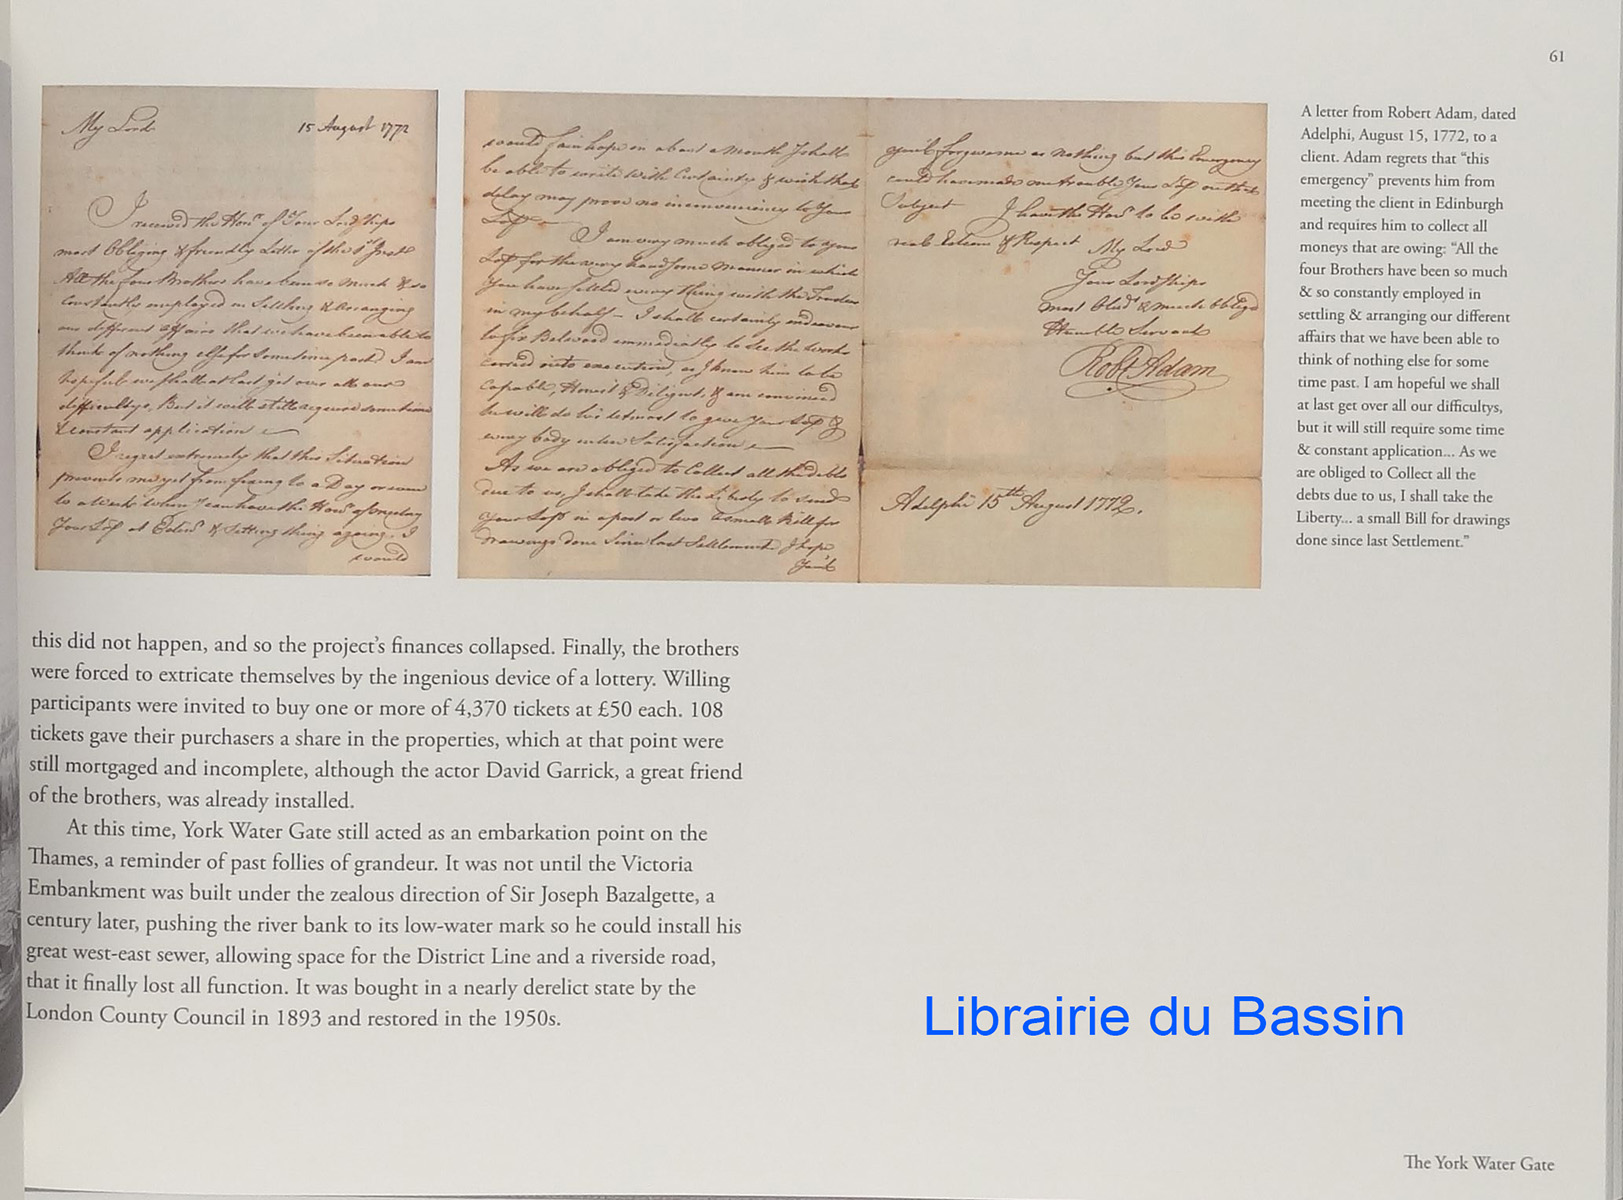 61
My Lord
15 August 1772
I received the Honr. of Your Lordships
most Obliging & friendly Letter of the 1st Instt
All the four Brothers have been so much & so
Constantly employed in Settling & Arranging
our different affairs that we have been able to
think of nothing else for some time past. I am
hopefull we shall at last get over all our
difficultys, But it will still require some time
& constant application
I regret extremely that this Situation
prevents me yet from fixing to a Day or even
to a Week when I can have the Honr. of meeting
Your Lop at Edinr. & Setting things agoing. I
would
would fain hope in about a month I shall
be able to write with Certainty & wish that
delay may prove no inconveniency to Your
Lop
I am very much obliged to your
Lop for the very handsome manner in which
You have settled every thing with the
in my behalf — I shall certainly endeavour
to fix Belwood immediatly to see the works
carried into execution, as I know him to be
capable, Honest & Diligent, & am convinced
he will do his utmost to give Your Lop &
every body Satisfaction
As we are obliged to Collect all the debts
due to us, I shall take the Liberty to send
Your Lop in a post or two a small Bill for
drawings done Since last Settlement I hope
You'l
you'l forgive me as nothing but this Emergency
could have made me trouble Your Lop on this
Subject I have the Honr. to be with
real Esteem & Respect My Lord
Your Lordships
most Obedt. & much Obliged
Humble Servant
Robt. Adam
Adelphi 15th August 1772.
A letter from Robert Adam, dated
Adelphi, August 15, 1772, to a
client. Adam regrets that “this
emergency” prevents him from
meeting the client in Edinburgh
and requires him to collect all
moneys that are owing: “All the
four Brothers have been so much
& so constantly employed in
settling & arranging our different
affairs that we have been able to
think of nothing else for some
time past. I am hopeful we shall
at last get over all our difficultys,
but it will still require some time
& constant application... As we
are obliged to Collect all the
debts due to us, I shall take the
Liberty... a small Bill for drawings
done since last Settlement.”
this did not happen, and so the project’s finances collapsed. Finally, the brothers
were forced to extricate themselves by the ingenious device of a lottery. Willing
participants were invited to buy one or more of 4,370 tickets at £50 each. 108
tickets gave their purchasers a share in the properties, which at that point were
still mortgaged and incomplete, although the actor David Garrick, a great friend
of the brothers, was already installed.
At this time, York Water Gate still acted as an embarkation point on the
Thames, a reminder of past follies of grandeur. It was not until the Victoria
Embankment was built under the zealous direction of Sir Joseph Bazalgette, a
century later, pushing the river bank to its low-water mark so he could install his
great west-east sewer, allowing space for the District Line and a riverside road,
that it finally lost all function. It was bought in a nearly derelict state by the
London County Council in 1893 and restored in the 1950s.
Librairie du Bassin
The York Water Gate